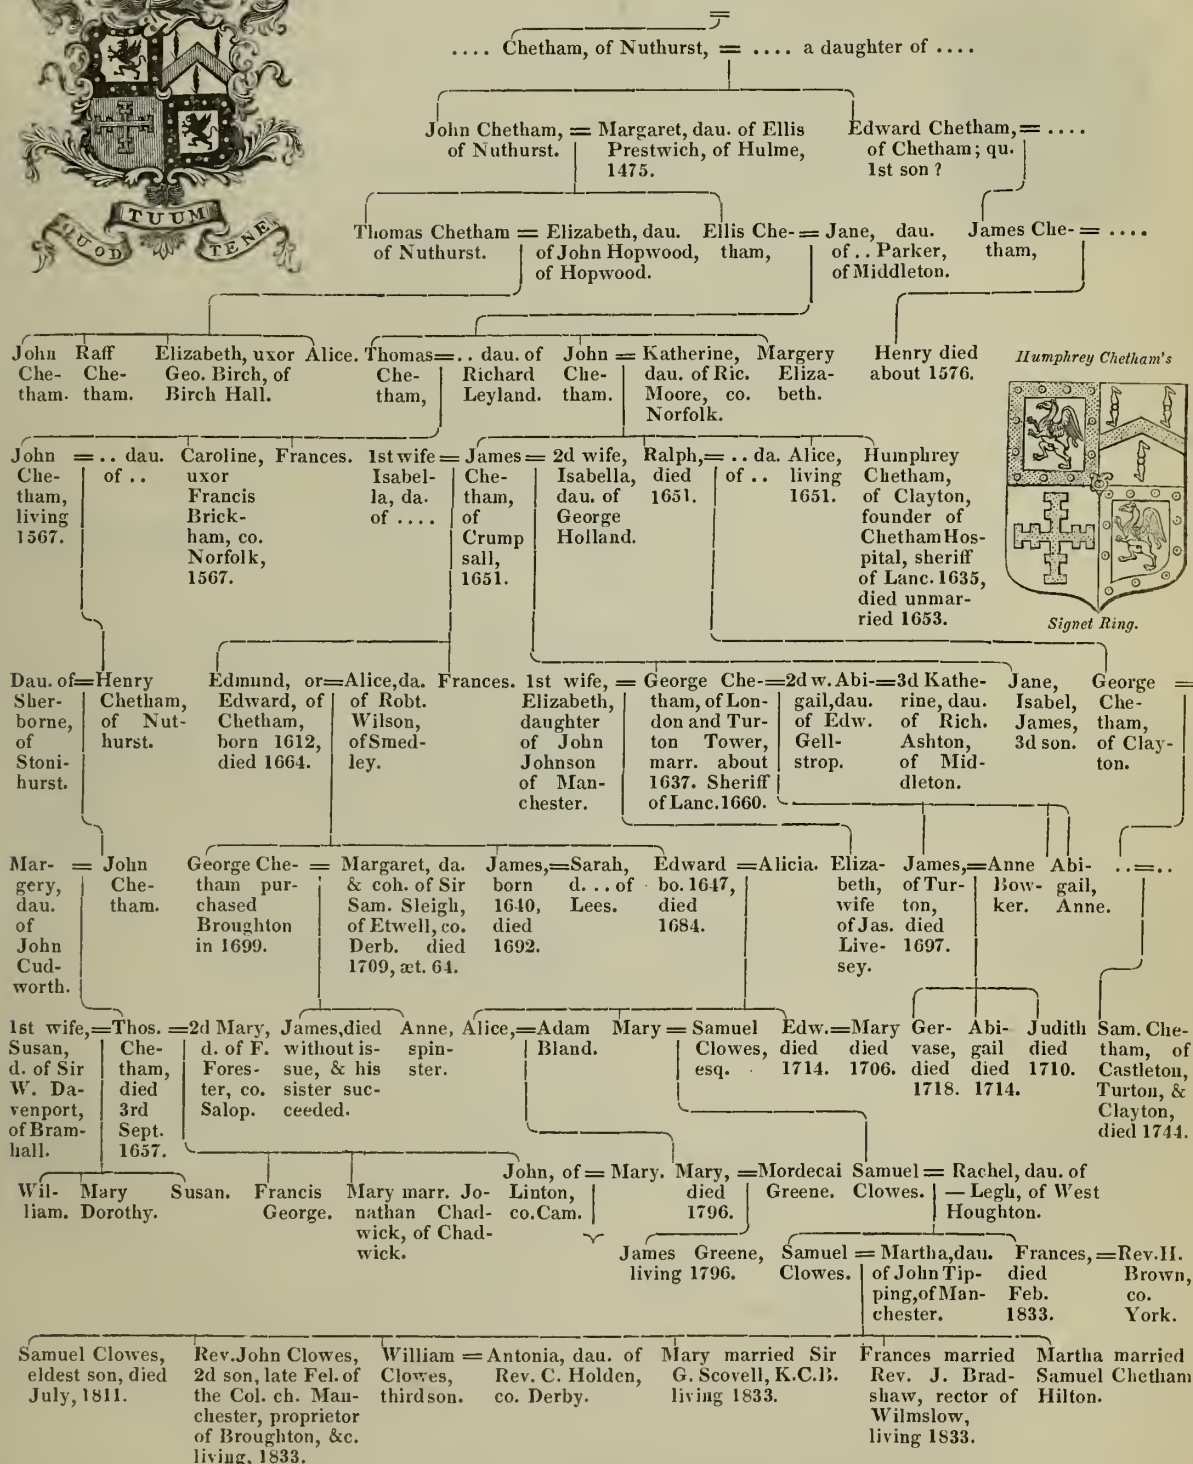 .... Chetham, of Nuthurst, = .... a daughter of ....
John Chetham, = Margaret, dau. of Ellis
of Nuthurst. Prestwich, of Hulme,
1475.
Edward Chetham, = ....
of Chetham; qu.
1st son ?
TUUM
QUOD TENE
Thomas Chetham = Elizabeth, dau.
of Nuthurst. of John Hopwood,
of Hopwood.
Ellis Che- = Jane, dau.
tham, of .. Parker,
of Middleton.
James Che- = ....
tham,
John
Che-
tham.
Raff
Che-
tham.
Elizabeth, uxor
Geo. Birch, of
Birch Hall.
Alice.
Thomas = .. dau. of
Che- Richard
tham, Leyland.
John = Katherine,
Che- dau. of Ric.
tham. Moore, co.
Norfolk.
Margery
Eliza-
beth.
Henry died
about 1576.
Humphrey Chetham's
Signet Ring.
John = .. dau.
Che- of ..
tham,
living
1567.
Caroline,
uxor
Francis
Brick-
ham, co.
Norfolk,
1567.
Frances.
1st wife =
Isabel-
la, da.
of ....
James =
Che-
tham,
of
Crump
sall,
1651.
2d wife,
Isabella,
dau. of
George
Holland.
Ralph, = .. da.
died of ..
1651.
Alice,
living
1651.
Humphrey
Chetham,
of Clayton,
founder of
Chetham Hos-
pital, sheriff
of Lanc. 1635,
died unmar-
ried 1653.
Dau. of =
Sher-
borne,
of
Stoni-
hurst.
Henry
Chetham,
of Nut-
hurst.
Edmund, or =
Edward, of
Chetham,
born 1612,
died 1664.
Alice, da.
of Robt.
Wilson,
of Smed-
ley.
Frances.
1st wife, =
Elizabeth,
daughter
of John
Johnson
of Man-
chester.
George Che- =
tham, of Lon-
don and Tur-
ton Tower,
marr. about
1637. Sheriff
of Lanc. 1660.
2d w. Abi- =
gail, dau.
of Edw.
Gell-
strop.
3d Kathe-
rine, dau.
of Rich.
Ashton,
of Mid-
dleton.
Jane,
Isabel,
James,
3d son.
George =
Che-
tham,
of Clay-
ton.
Mar- =
gery,
dau.
of
John
Cud-
worth.
John
Che-
tham.
George Che- =
tham pur-
chased
Broughton
in 1699.
Margaret, da.
& coh. of Sir
Sam. Sleigh,
of Etwell, co.
Derb. died
1709, æt. 64.
James, =
born
1640,
died
1692.
Sarah,
d. .. of
Lees.
Edward = Alicia.
bo. 1647,
died
1684.
Eliza-
beth,
wife
of Jas.
Live-
sey.
James, =
of Tur-
ton,
died
1697.
Anne
Bow-
ker.
Abi-
gail,
Anne.
.. = ..
1st wife, =
Susan,
d. of Sir
W. Da-
venport,
of Bram-
hall.
Thos. =
Che-
tham,
died
3rd
Sept.
1657.
2d Mary,
d. of F.
Fores-
ter, co.
Salop.
James, died
without is-
sue, & his
sister suc-
ceeded.
Anne,
spin-
ster.
Alice, = Adam
Bland.
Mary = Samuel
Clowes,
esq.
Edw. = Mary
died died
1714. 1706.
Ger-
vase,
died
1718.
Abi-
gail
died
1714.
Judith
died
1710.
Sam. Che-
tham, of
Castleton,
Turton, &
Clayton,
died 1744.
Wil-
liam.
Mary
Dorothy.
Susan.
Francis
George.
Mary marr. Jo-
nathan Chad-
wick, of Chad-
wick.
John, of = Mary.
Linton,
co. Cam.
Mary, = Mordecai
died Greene.
1796.
Samuel = Rachel, dau. of
Clowes. — Legh, of West
Houghton.
James Greene,
living 1796.
Samuel = Martha, dau.
Clowes. of John Tip-
ping, of Man-
chester.
Frances, = Rev. H.
died Brown,
Feb. co.
1833. York.
Samuel Clowes,
eldest son, died
July, 1811.
Rev. John Clowes,
2d son, late Fel. of
the Col. ch. Man-
chester, proprietor
of Broughton, &c.
living, 1833.
William = Antonia, dau. of
Clowes, Rev. C. Holden,
third son. co. Derby.
Mary married Sir
G. Scovell, K.C.B.
living 1833.
Frances married
Rev. J. Brad-
shaw, rector of
Wilmslow,
living 1833.
Martha married
Samuel Chetham
Hilton.